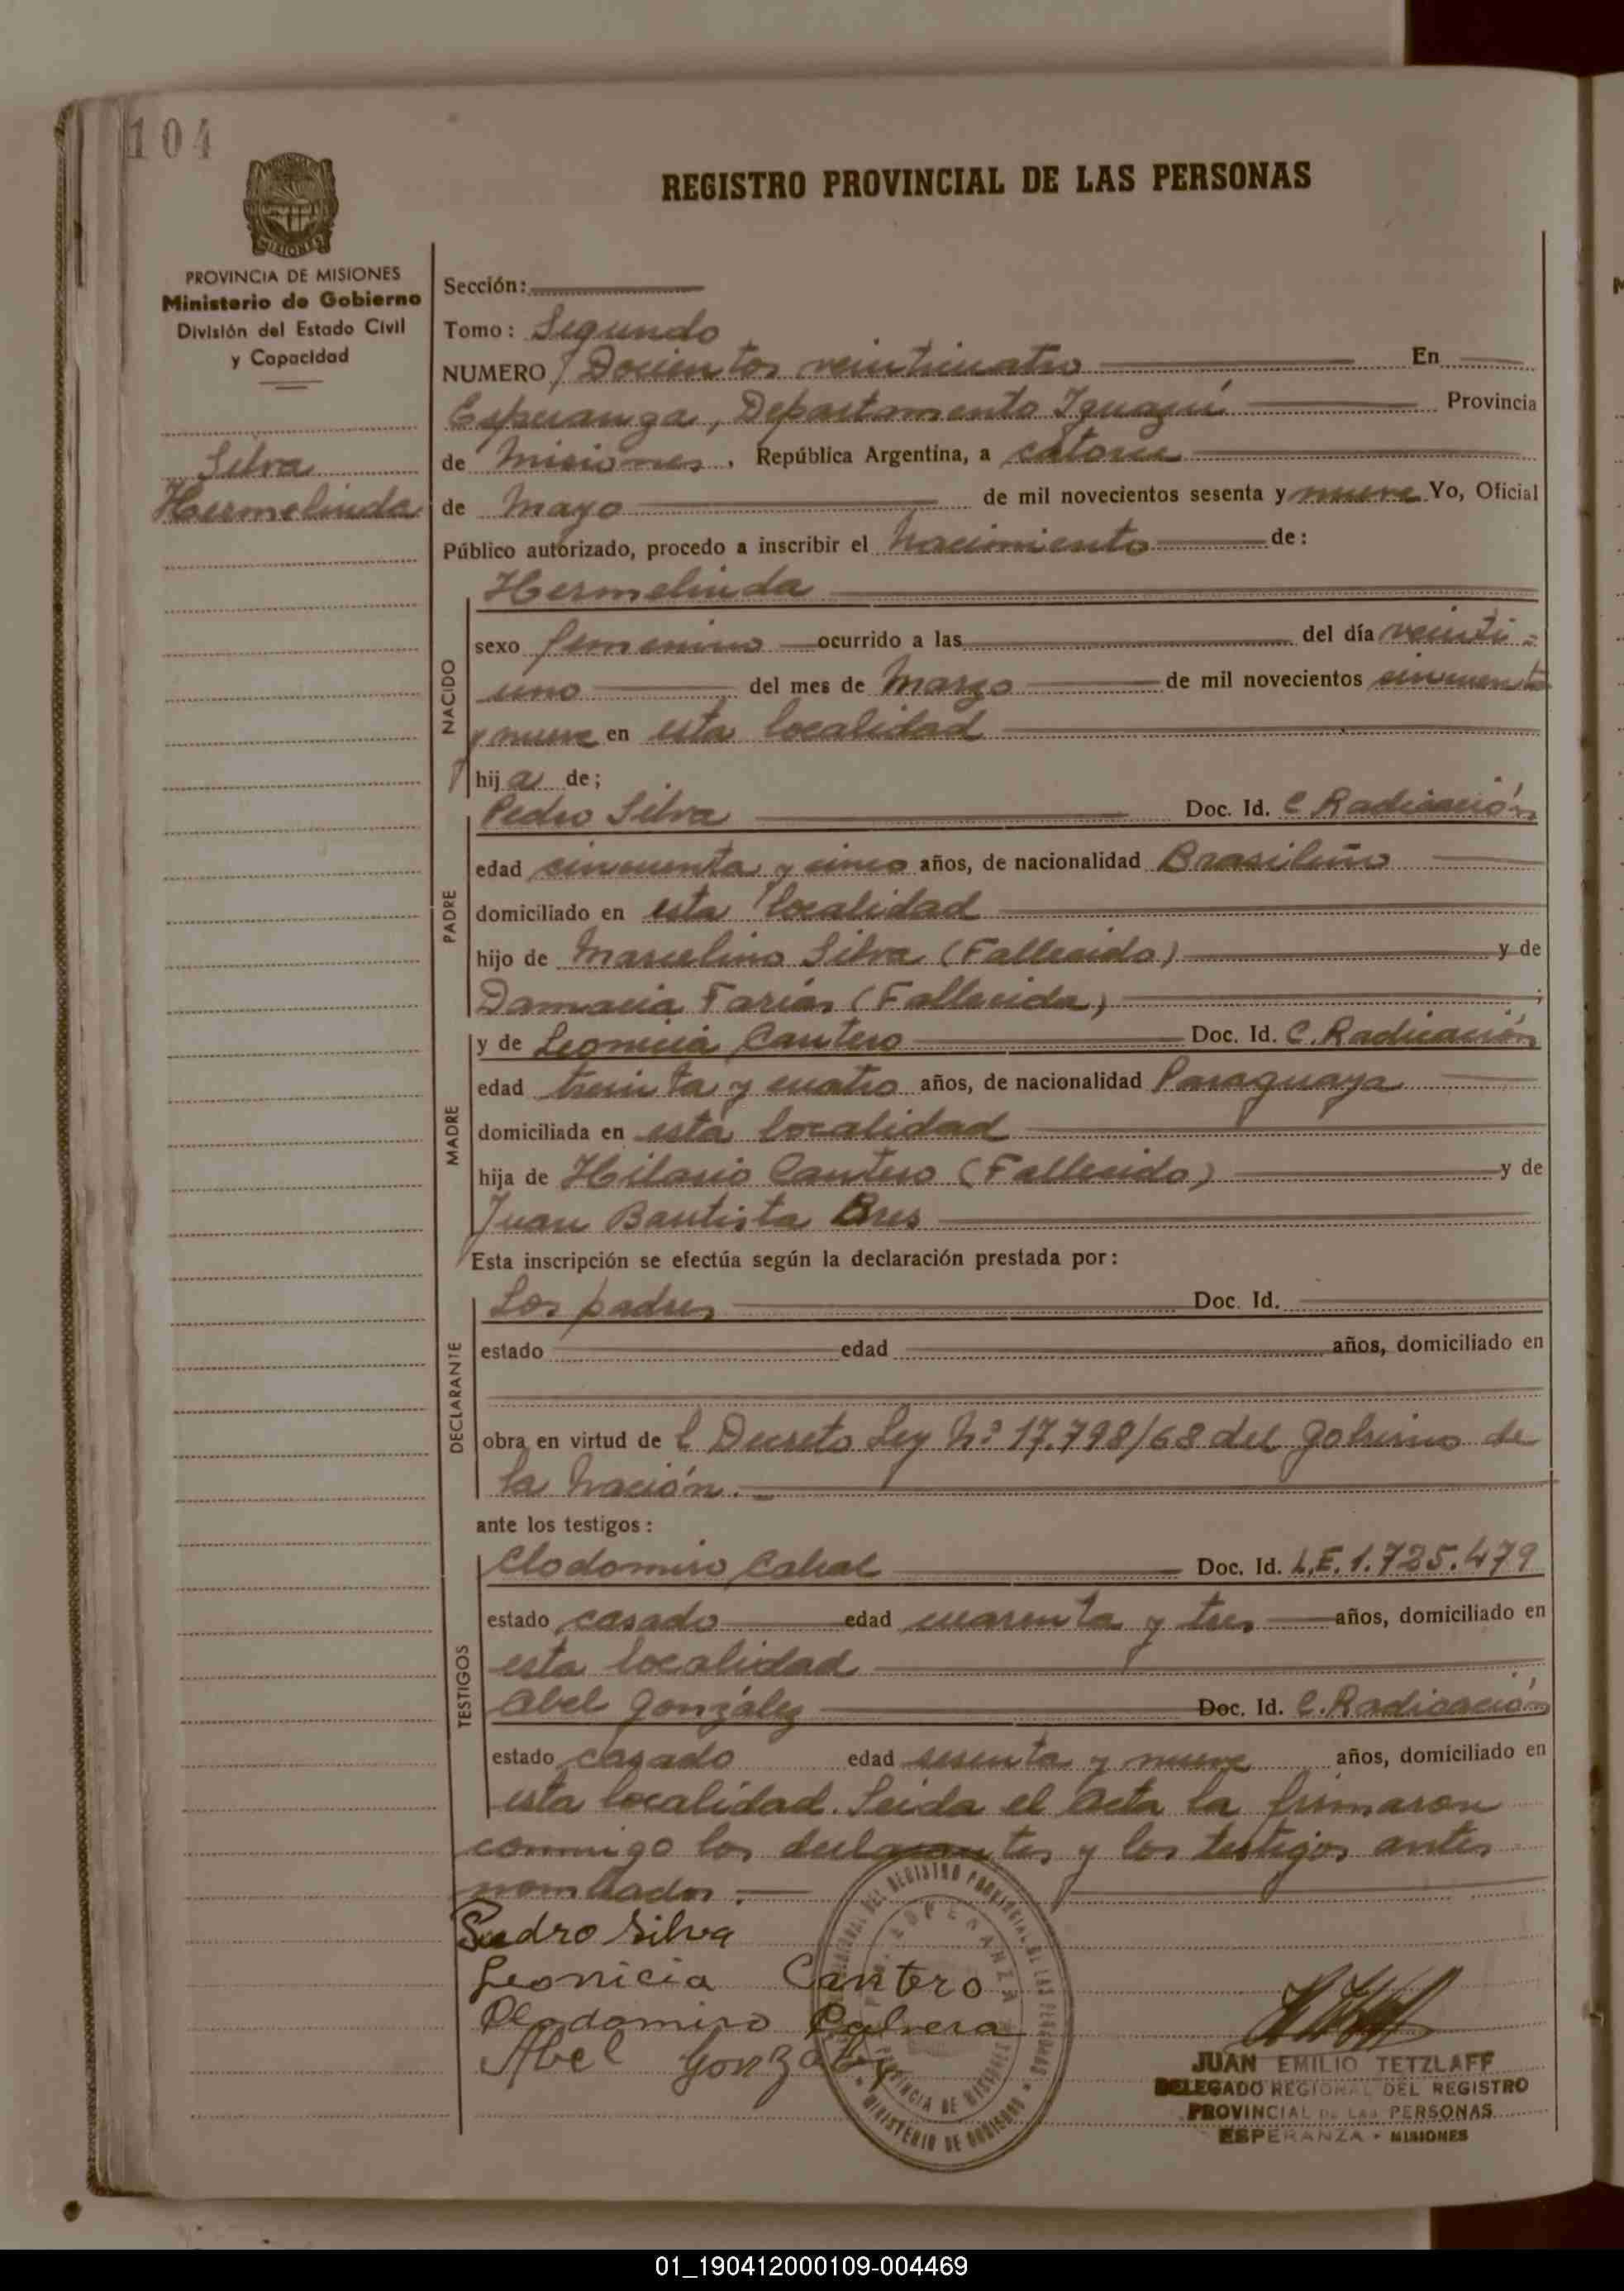 104
REGISTRO PROVINCIAL DE LAS PERSONAS
MISIONES
PROVINCIA DE MISIONES
Ministerio de Gobierno
División del Estado Civil
y Capacidad
Silva
Hermelinda
Sección:
Tomo: Segundo
NUMERO Docientos veinticuatro En
Esperanza, Departamento Iguazú Provincia
de Misiones, República Argentina, a catorce
de Mayo de mil novecientos sesenta y nueve Yo, Oficial
Público autorizado, procedo a inscribir el Nacimiento de:
NACIDO
Hermelinda
sexo femenino ocurrido a las del día veinti=
uno del mes de Marzo de mil novecientos cincuenta
y nueve en esta localidad
hija de;
PADRE
Pedro Silva Doc. Id. C Radicación
edad cincuenta y cinco años, de nacionalidad Brasileño
domiciliado en esta localidad
hijo de Marcelino Silva (Fallecido) y de
Damacia Farias (Fallecida);
MADRE
y de Leonicia Cantero Doc. Id. C. Radicación
edad treinta y cuatro años, de nacionalidad Paraguaya
domiciliada en esta localidad
hija de Hilario Cantero (Fallecido) y de
Juan Bautista Bres
Esta inscripción se efectúa según la declaración prestada por:
DECLARANTE
Los padres Doc. Id.
estado edad años, domiciliado en
obra en virtud de l Decreto Ley Nº 17.798/68 del gobierno de
la Nación.
ante los testigos:
TESTIGOS
Clodomiro Cabral Doc. Id. L.E. 1.725.479
estado casado edad cuarenta y tres años, domiciliado en
esta localidad
Abel González Doc. Id. C. Radicación
estado casado edad sesenta y nueve años, domiciliado en
esta localidad. Leida el Acta la firmaron
conmigo los declarantes y los testigos antes
nombrados.
Pedro Silva
Leonicia Cantero
Clodomiro
Abel Gonzalez
DEL REGISTRO PROVINCIAL DE LAS PERSONAS
ESPERANZA
PROVINCIA DE MISIONES
MINISTERIO DE GOBIERNO
JUAN EMILIO TETZLAFF
DELEGADO REGIONAL DEL REGISTRO
PROVINCIAL DE LAS PERSONAS
ESPERANZA - MISIONES
01_190412000109-004469